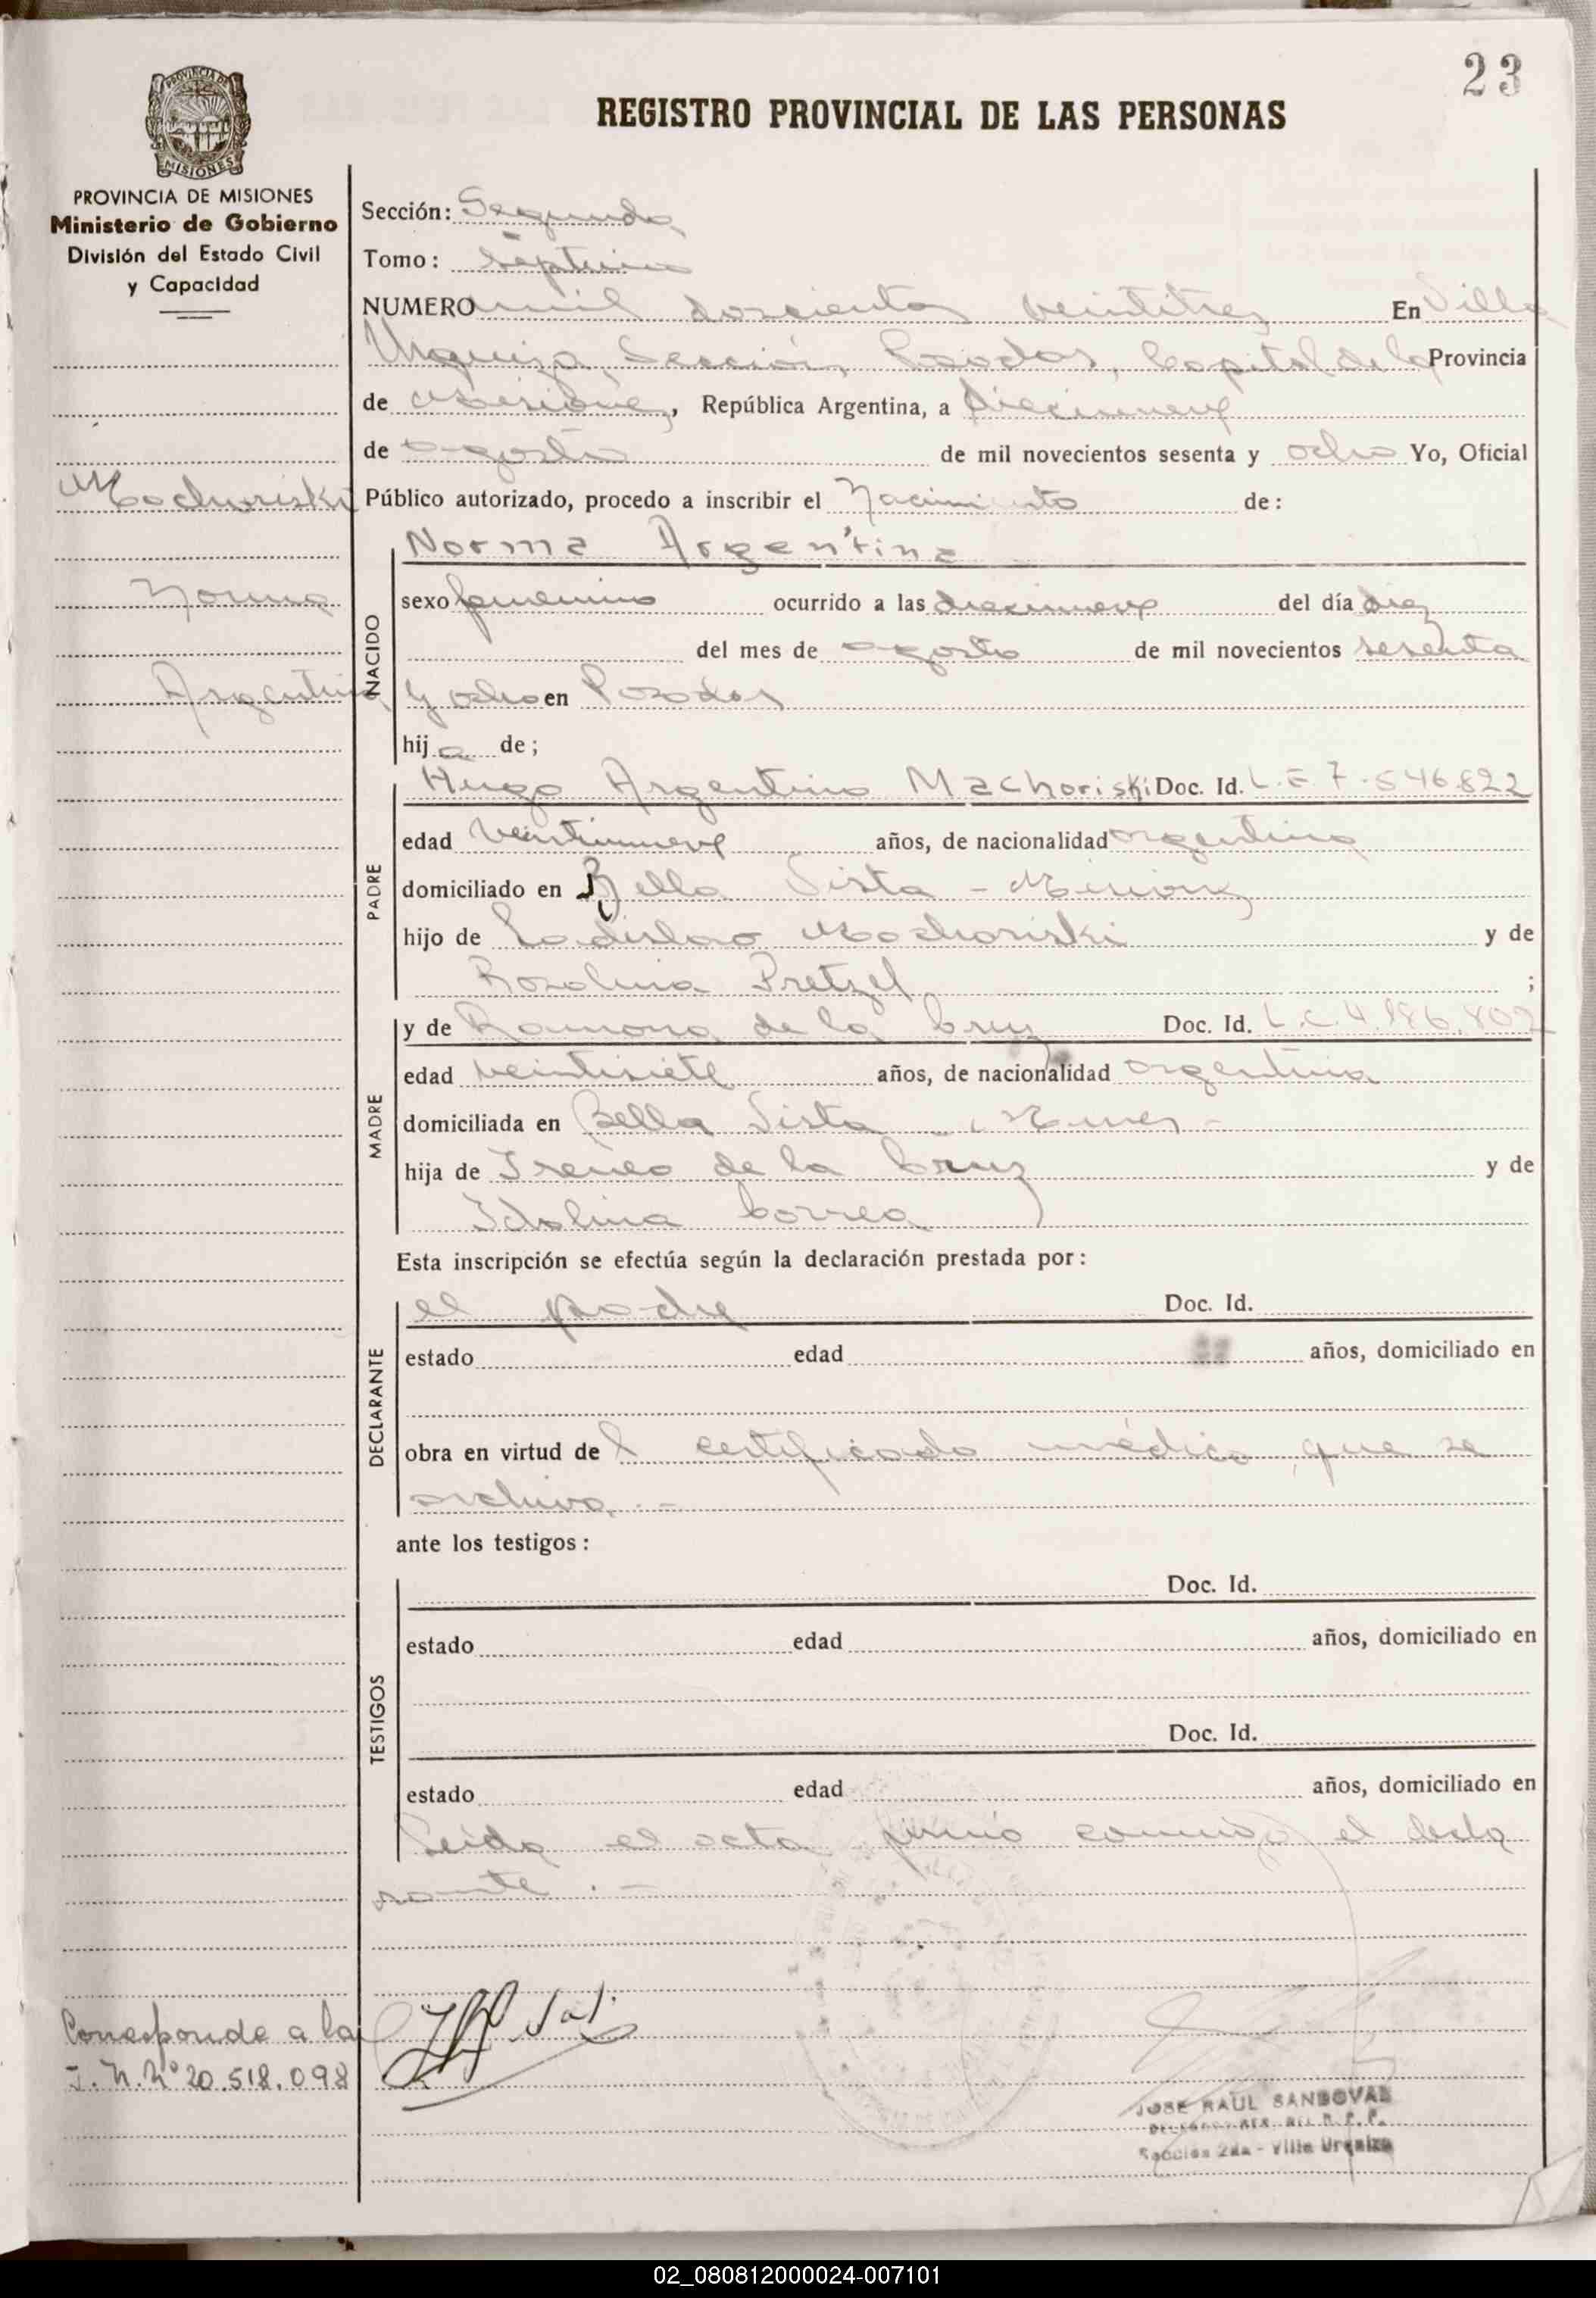 23
PROVINCIA DE MISIONES
REGISTRO PROVINCIAL DE LAS PERSONAS
PROVINCIA DE MISIONES
Ministerio de Gobierno
División del Estado Civil
y Capacidad
Machoriski
Norma
Argentina
Corresponde a la
I. N. Nº 20.518.098
Sección: Segunda
Tomo: Séptimo
NUMERO mil doscientos veintitres En Villa
Urquiza Sección, Posadas, Capital de la Provincia
de Misiones, República Argentina, a diecinueve
de agosto de mil novecientos sesenta y ocho Yo, Oficial
Público autorizado, procedo a inscribir el Nacimiento de:
NACIDO
Norma Argentina
sexo femenino ocurrido a las diecinueve del día diez
del mes de agosto de mil novecientos sesenta
y ocho en Posadas
hija de;
PADRE
Hugo Argentino Machoriski Doc. Id. L.E 7.546.822
edad veintinueve años, de nacionalidad argentina
domiciliado en Bella Vista - Misiones
hijo de Ladislao Machoriski y de
Rosalina Pretzel ;
MADRE
y de Ramona de la Cruz Doc. Id. L.C.4.186.802
edad veintisiete años, de nacionalidad argentina
domiciliada en Bella Vista - Mnes -
hija de Ireneo de la Cruz y de
Idolina Correa
Esta inscripción se efectúa según la declaración prestada por:
DECLARANTE
el padre Doc. Id.
estado edad años, domiciliado en
obra en virtud del certificado médico que se
archiva. -
ante los testigos:
TESTIGOS
Doc. Id.
estado edad años, domiciliado en
Doc. Id.
estado edad años, domiciliado en
Leida el acta firmó conmigo el decla
rante. -
JOSE RAUL SANDOVAL
Seccion 2da - Villa Urquiza
02_080812000024-007101